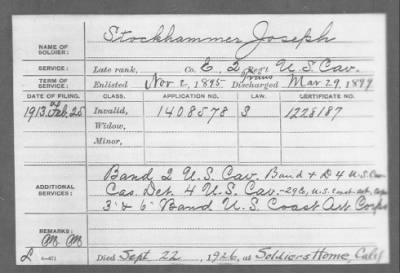 Stockhammer Joseph
NAME OF SOLDIER:
SERVICE: Late rank, Co. E, 2 Reg't U.S. Cav.
TERM OF SERVICE: Enlisted Nov 2, 1895 Discharged Mar 29, 1899
DATE OF FILING. CLASS. APPLICATION NO. LAW. CERTIFICATE NO.
1913 Feb. 25 Invalid, 1408578 S 1228187
Widow,
Minor,
ADDITIONAL SERVICES:
Band 2 U.S. Cav. Band & D 4 U.S. Cav.
Cas. Det. 4 U.S. Cav. - 29 Co, U.S. Coast Art. Corps
3" & 6" Band U.S. Coast Art Corps
REMARKS:
Died Sept 22, 1926, at Soldiers Home, Calif